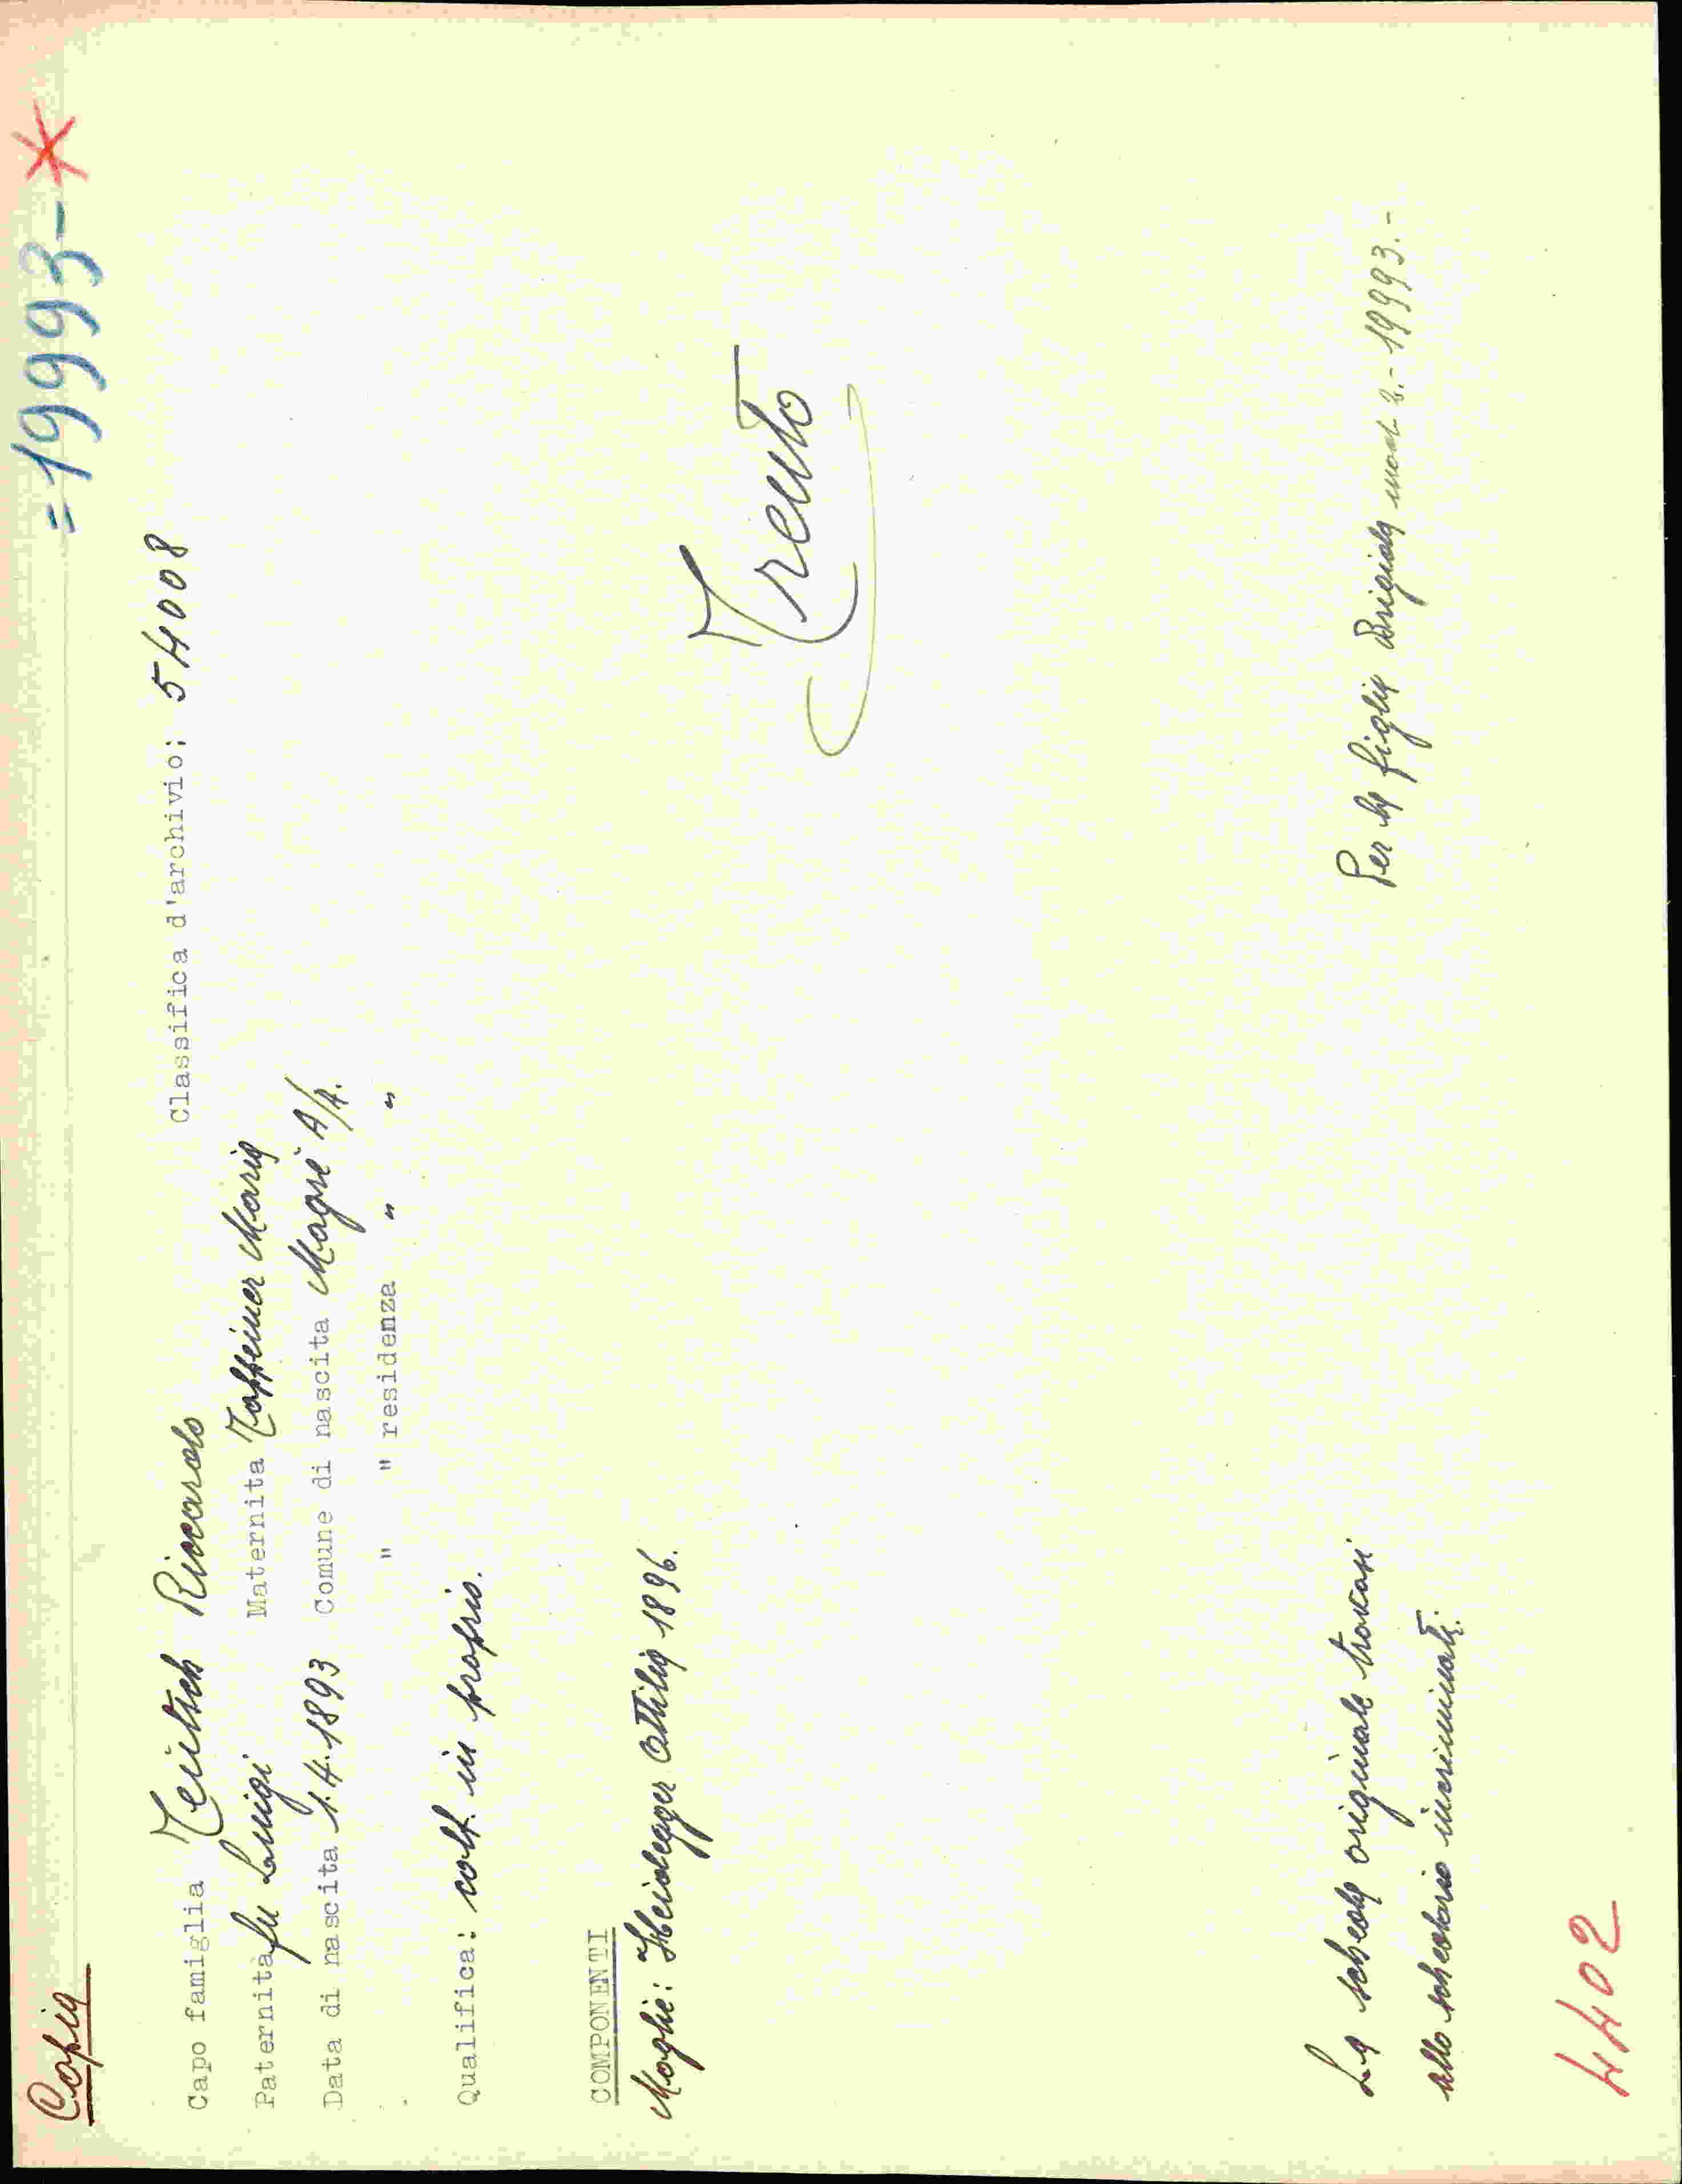 Copia
=19993-*
Capo famiglia Teutsch Riccardo Classifica d'archivio: 54008
Paternità fu Luigi Maternita Zoffeiner Maria
Data di nascita 1.4.1893 Comune di nascita Magré A/A.
" " residenza " "
Qualifica: colt. in proprio.
COMPONENTI
Moglie: Heidegger Ottilia 1896.
Trento
La scheda originale trovasi
allo schedario incriminati.
Per la figlia Brigida 2.-19993.-
4402